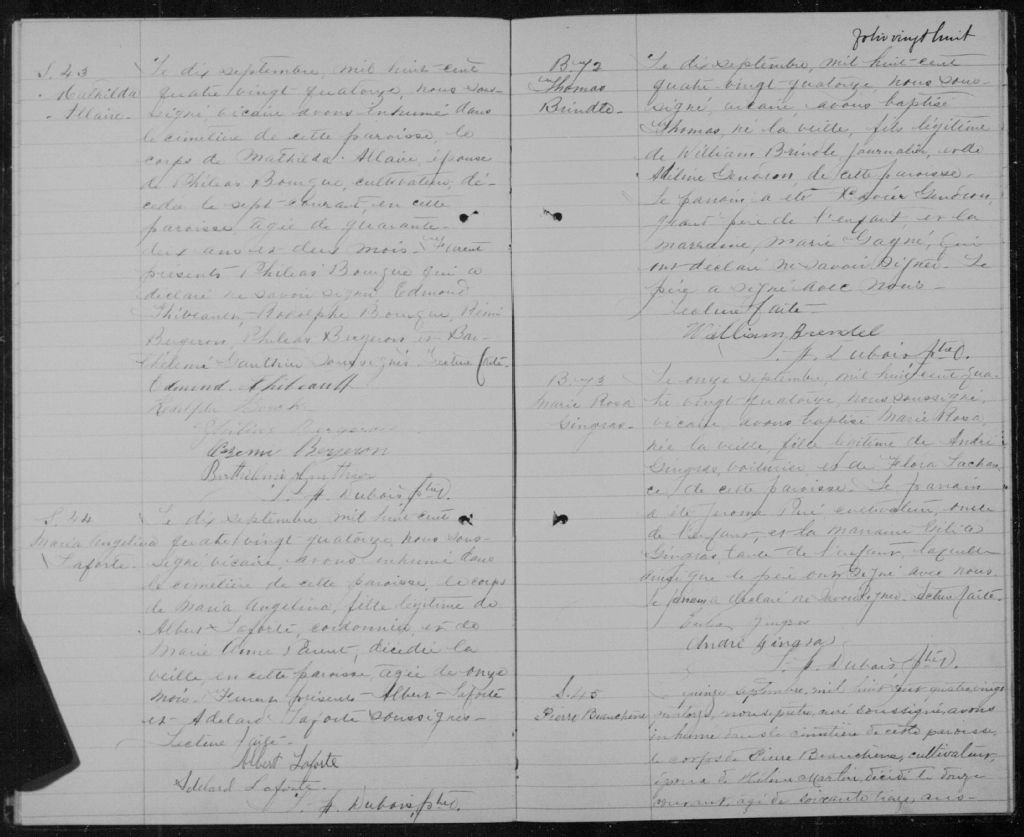 S. 43
Mathilda
Allaire.
Le dix septembre, mil huit-cent
quatre vingt quatorze, nous sous-
signé, vicaire avons inhumé dans
le cimetière de cette paroisse, le
corps de Mathilda Allaire, épouse
de Philéas Bourque, cultivateur, dé-
cédée le sept courant, en cette
paroisse, agée de quarante-
deux ans et deux mois. Furent
présents Philéas Bourque qui a
déclaré ne savoir signer, Edmond
Thibeault, Rodolphe Bourque, Rémi
Bergeron, Philéas Bergeron et Bar-
thélemi Gauthier soussignés. Lecture faite.
Edmond Thibeault
Rodolph
Bergeron
Bergeron
S. A. Dubois, ptre.
S. 44
Maria Angelina
Laforte.
Le dix septembre mil huit cent
quatre vingt quatorze, nous sous-
signé vicaire, avons inhumé dans
le cimetière de cette paroisse, le corps
de Maria Angelina, fille légitime de
Albert Laforte, cordonnier, et de
Marie Anne Parent, décédée la
veille en cette paroisse, agée de onze
mois. Furent présents Albert Laforte
et Adelard Laforte soussignés-
Lecture faite.
Albert Laforte
Adelard Laforte
A. Dubois, ptre.
folio vingt huit
B. 72
Thomas
Brindle.
Le dix septembre, mil huit-cent
quatre vingt quatorze nous sous-
signé, vicaire avons baptisé
Thomas, né la veille, fils légitime
de William Brindle journalier, et de
Gendron de cette paroisse.
Le parrain a été Xavier Gendron,
grand père de l'enfant et la
marraine, Marie Gagné, qui
ont declaré ne savoir signer. Le
père a signé avec nous-
Lecture faite-
William Brendel
A. Dubois ptre.
B. 73
Marie Rosa
Gingras.
Le onze septembre, mil huit cent qua-
tre vingt quatorze, nous soussigné,
vicaire, avons baptisé Marie Rosa,
née la veille, fille légitime de André
Gingras, voiturier et de Flora Lachan-
ce, de cette paroisse. Le parrain
a été Jerome cultivateur, oncle
de l'enfant, et la marraine
Gingras, tante de l'enfant, laquelle
ainsi que le père ont signé avec nous.
Le parrain a declaré ne savoir signer. Lecture faite.
André Gingras
A. Dubois, ptre.
S. 45
Pierre Beauchêne
quinze septembre, mil huit cent quatre vingt
quatorze, nous prêtre, curé soussigné, avons
inhumé dans le cimetière de cette paroisse,
le corps de Pierre Beauchêne, cultivateur,
époux de Martin, décédé le douze
courant, agé de soixante ans-